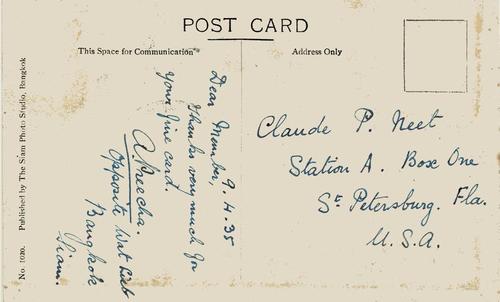 POST CARD
This Space for Communication
Address Only
No. 1020. Published by The Siam Photo Studio, Bangkok
9.4.35
Dear Member,
Thanks very much for
your fine card.
A. Preecha.
Opposite Wat Lieb
Bangkok
Siam.
Claude P. Neet
Station A. Box One
St Petersburg. Fla.
U.S.A.